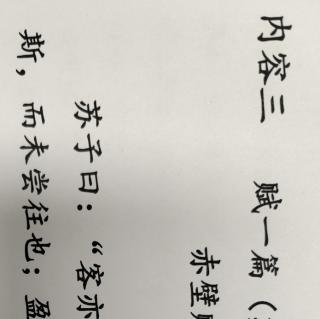 内容三 赋一篇（
赤壁
苏子曰：“客亦
斯，而未尝往也；盈